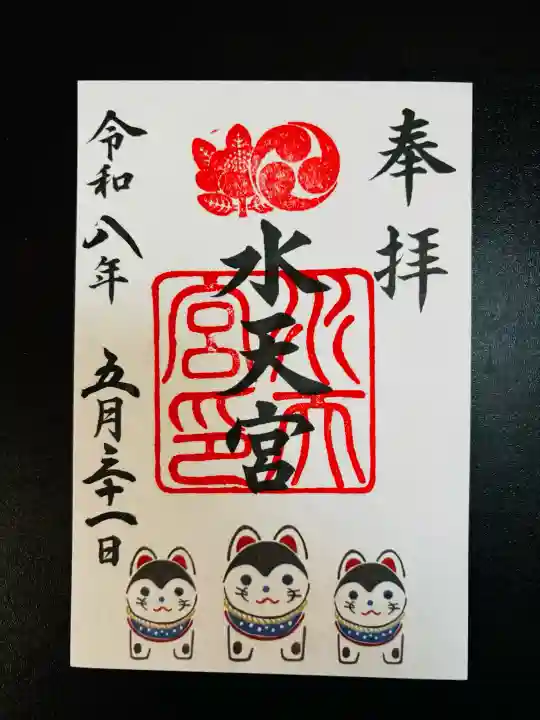 奉拝
水天宮
水天宮印
令和八年 五月三十一日